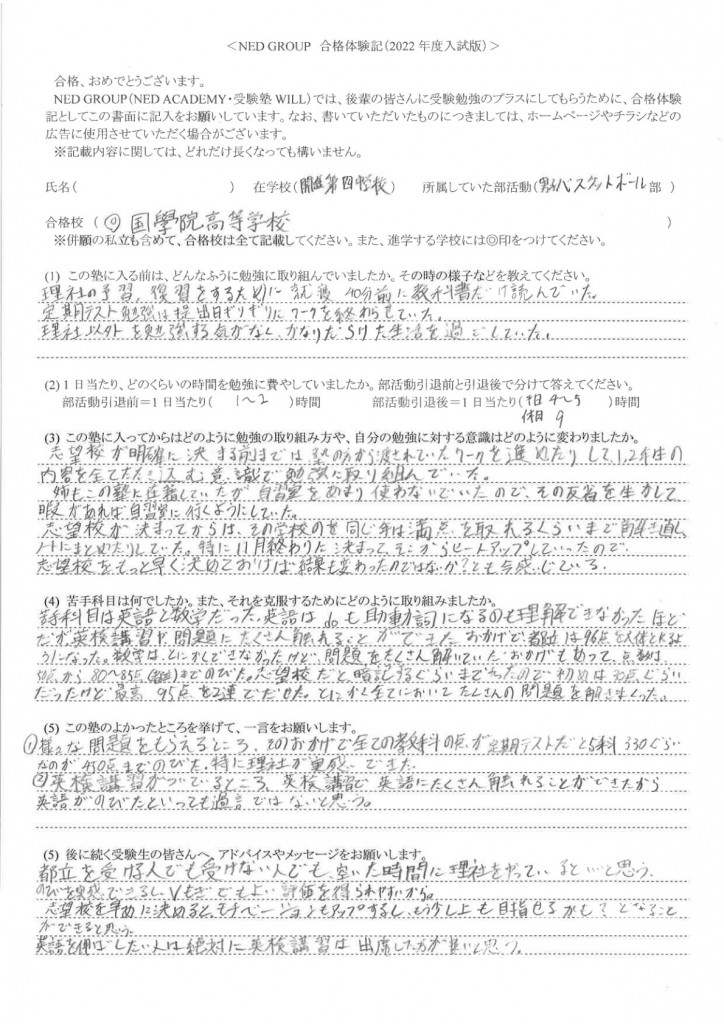 ＜NED GROUP 合格体験記（2022 年度入試版）＞
合格、おめでとうございます。
NED GROUP（NED ACADEMY・受験塾 WILL）では、後輩の皆さんに受験勉強のプラスにしてもらうために、合格体験
記としてこの書面に記入をお願いしています。なお、書いていただいたものにつきましては、ホームページやチラシなどの
広告に使用させていただく場合がございます。
※記載内容に関しては、どれだけ長くなっても構いません。
氏名（ ） 在学校（開進第四中学校） 所属していた部活動（男子バスケットボール部 ）
合格校 （◎国學院高等学校 ）
※併願の私立も含めて、合格校は全て記載してください。また、進学する学校には◎印をつけてください。
(1) この塾に入る前は、どんなふうに勉強に取り組んでいましたか。その時の様子などを教えてください。
理社の予習、復習をするために就寝40分前に教科書だけ読んでいた。
定期テスト勉強は提出日ギリギリにワークを終わらせていた。
理社以外を勉強する気がなく、かなりだらけた生活を過ごしていた。
(2) 1 日当たり、どのくらいの時間を勉強に費やしていましたか。部活動引退前と引退後で分けて答えてください。
部活動引退前＝1 日当たり（ 1〜2 ）時間 部活動引退後＝1 日当たり（平日 4〜5 ）時間
休日 9
(3) この塾に入ってからはどのように勉強の取り組み方や、自分の勉強に対する意識はどのように変わりましたか。
志望校が明確に決まる前までは塾の方から渡されていたワークを進めたりして1,2年生の
内容を全てたたき込む意識で勉強に取り組んでいた。
姉もこの塾に在籍していたが自習室をあまり使わないでいたので、その反省を生かして
暇があれば自習室に行くようにしていた。
志望校が決まってからは、その学校のを同じ年は満点を取れるくらいまで解き直し
ノートにまとめたりしていた。特に11月終わりに決まって、そこからヒートアップしていったので
志望校をもっと早く決めておけば結果も変わったのではないか？とも今感じている。
(4) 苦手科目は何でしたか。また、それを克服するためにどのように取り組みましたか。
苦手科目は英語と数学だった。英語は do も助動詞になるのも理解できなかったほど
だが英検講習や、問題にたくさん触れることができたおかげで都立は96点を大体とれるよ
うになった。数学はとにかくできなかったけど、問題をたくさん解いていたおかげもあって、点数は
50点から80〜85点までのびた。志望校だと暗記するぐらいまでやったので初めは30点ぐらい
だったけど最高95点を2連でだせた。とにかく全てにおいてたくさんの問題を解きまくった。
(5) この塾のよかったところを挙げて、一言をお願いします。
①様々な問題をもらえるところ、そのおかげで全ての教科の点が定期テストだと5科330ぐらい
なのが450点までのびた。特に理社が実感できた。
②英検講習がついているところ、英検講習で英語にたくさん触れることができたから
英語がのびたといっても過言ではないと思う。
(5) 後に続く受験生の皆さんへ、アドバイスやメッセージをお願いします。
都立を受ける人でも受けない人でも、空いた時間に理社をやっているといいと思う。
のびを実感できるし、Vもぎでもよい評価を得られやすいから。
志望校を早めに決めるとモチベーションもアップするし、もう少し上も目指せるかも？となること
ができると思う。
英語を伸ばしたい人は絶対に英検講習は出席した方が良いと思う。